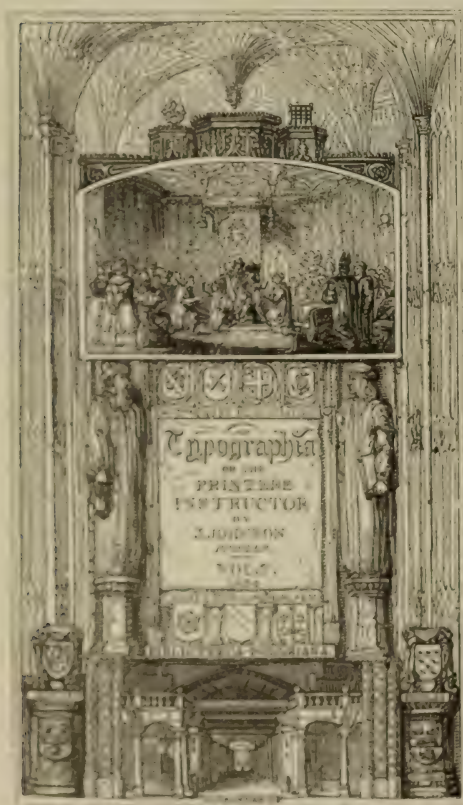 Typographia
OR THE
PRINTERS
INSTRUCTOR
BY
J. JOHNSON
PRINTER
VOL. I.